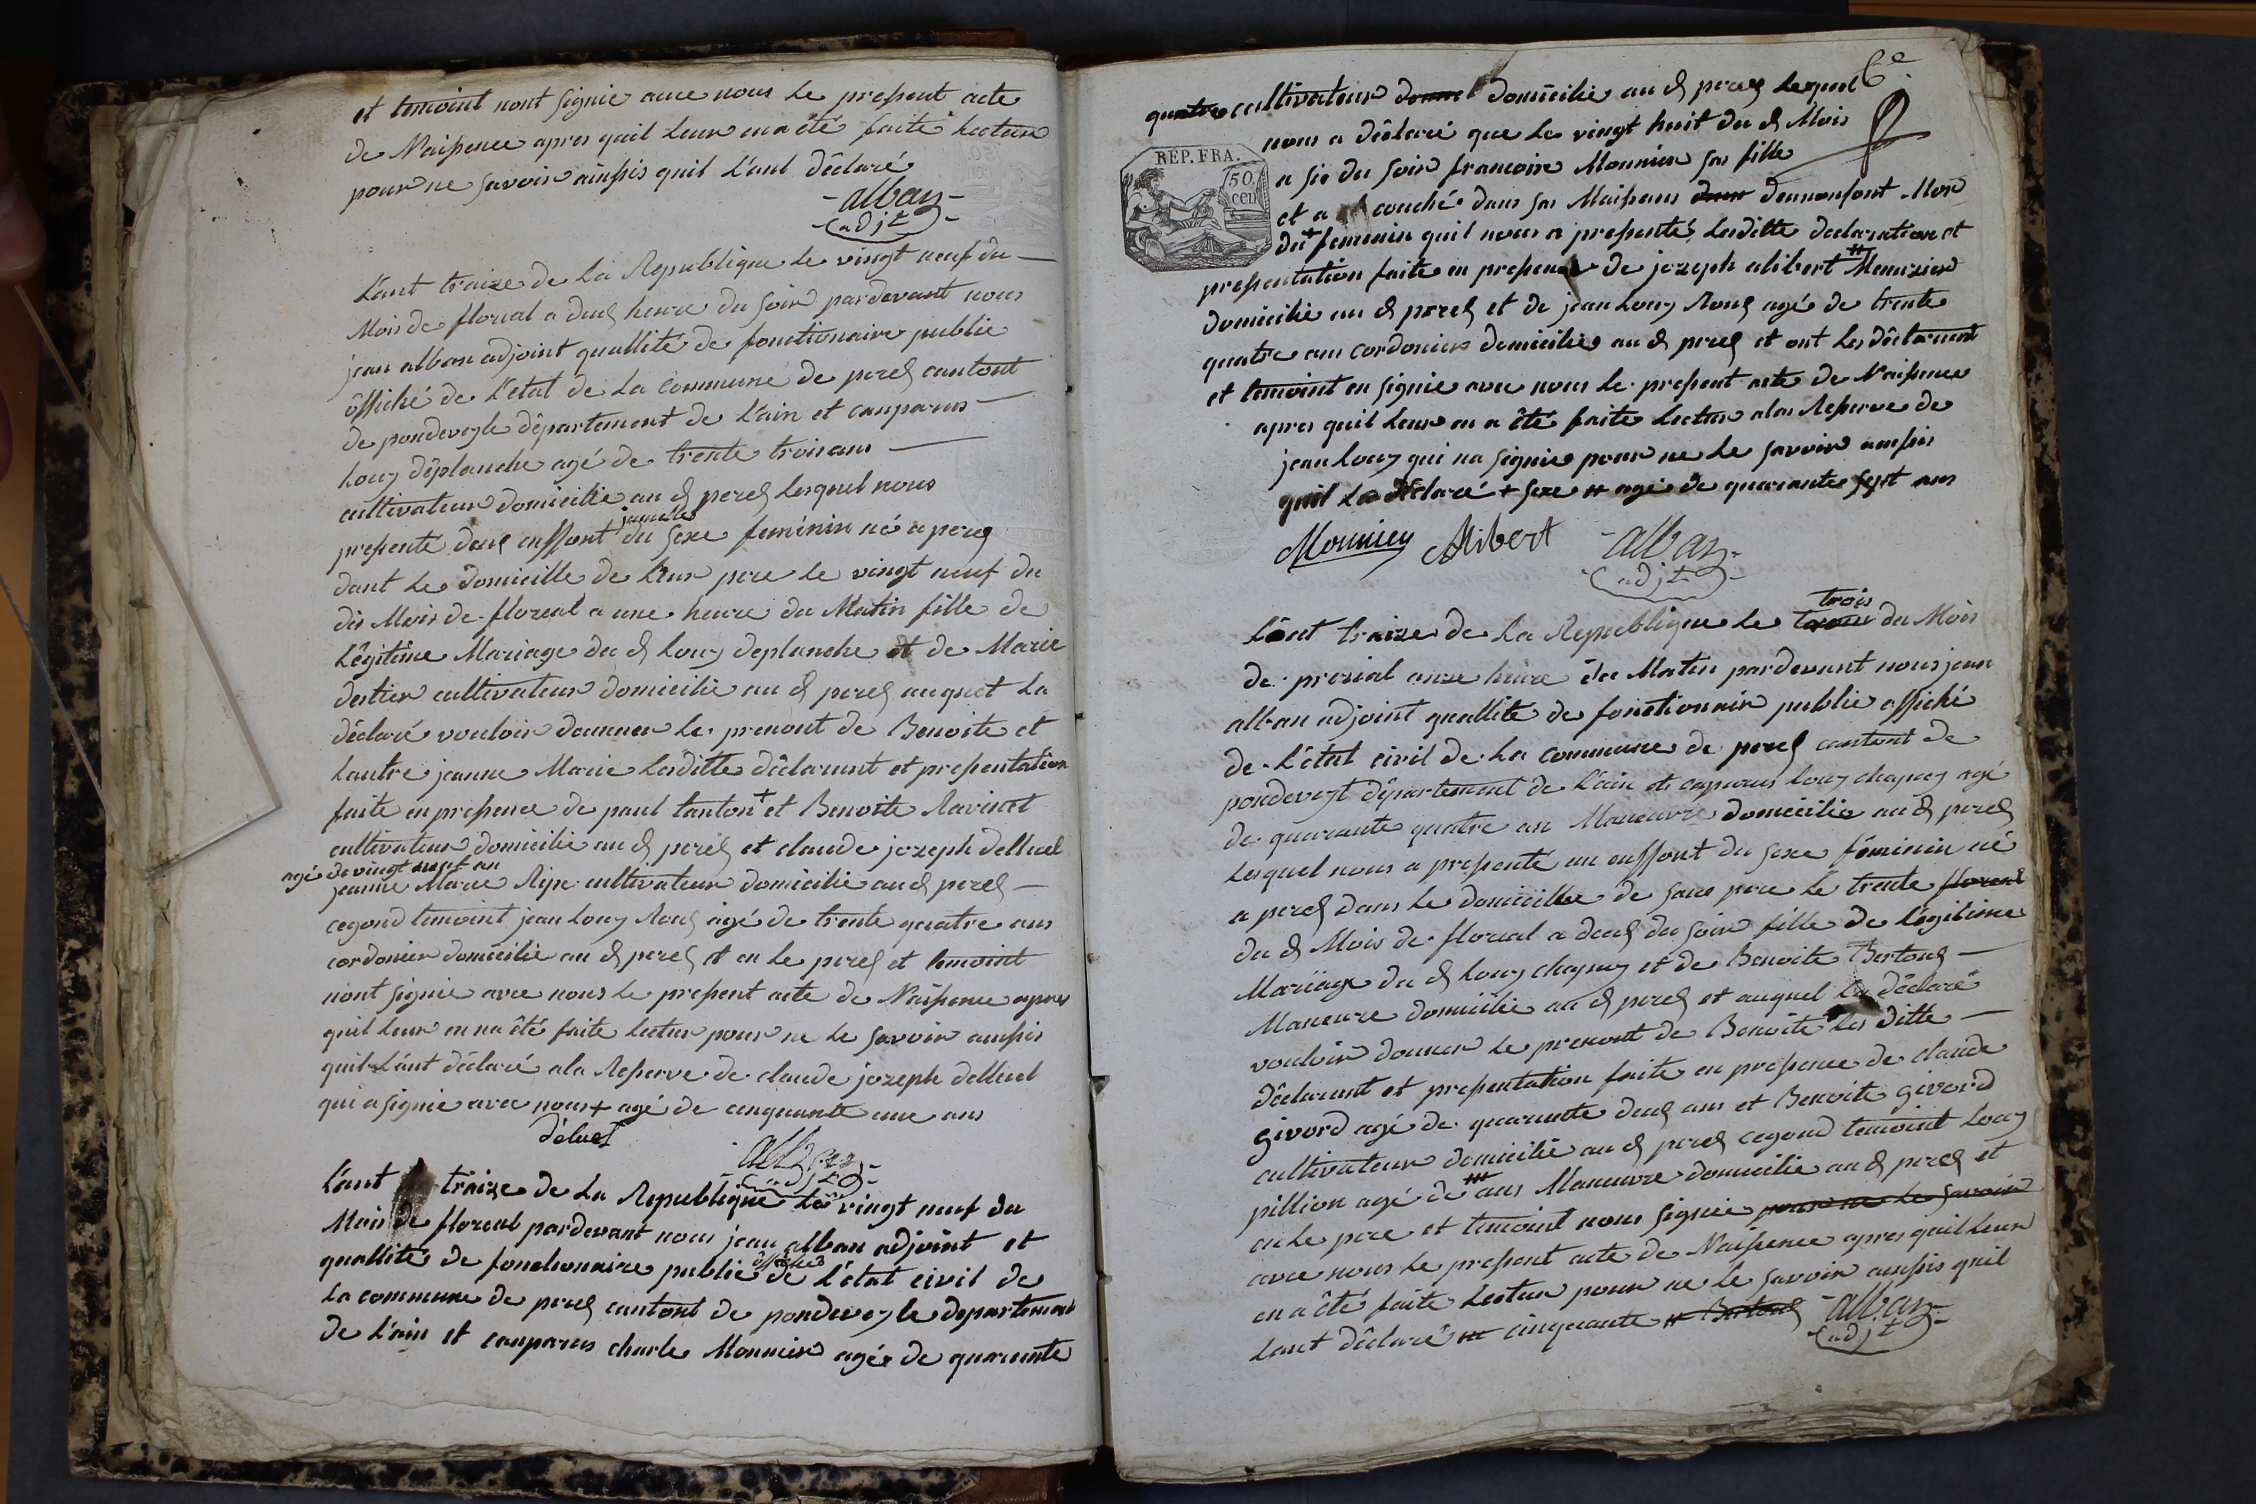 et temoint nont signie avec nous le present acte
de Naissence apres quil leur en a été faite lecture
pour ne savoir ainsis quil l'ant déclaré
alban
adjt
l'ant traize de la Republique le vingt neuf du
Mois de florial a deuq heure du soir pardevant nous
jean alban adjoint quallité de fonctionaire public
offiché de l'etat de la commune de perq cantont
de pondeveyle département de l'ain et canparus
louy déplanche agé de trente trois ans
cultivateur domicilie au d perq lesquel nous
presenté deuq enffont jumelle du sexe feminin né a perq
dant le domicille de leur pere le vingt neuf du
dis Mois de floreal a une heure du Matin fille de
légitime Mariage du d louy deplanche et de Marie
destier cultivateur domicilie au d perq auquel la
déclaré vouloir donner le prenont de Benoite et
lautre jeanne Marie lesditte déclarant et presentation
faite en presence de paul tanton + et Benoite Ravinet
cultivateur domicilie au d perq et claude jozeph delluel
agé de vingt neuf an
jeanne Marie Ripe cultivateur domicilie au d perq
cegond temoint jean louy Rouq agé de trente quatre ans
cordonier domicilie au d perq et en le perq et temoint
nont signie avec nous le present acte de Naissence apres
quil leur en na été faite lectur pour ne le savoir ainsis
quil l'ant déclaré a la Reserve de claude jozeph delluel
qui a signie avec nous + agé de cinquante une ans
déluel
alban
adjt
l'ant traize de la Republique le vingt neuf du
Mois de floreal pardevant nous jean alban adjoint et
quallité de fonctionaire public officher de l'état civil de
la commune de perq cantont de pondeveyle departement
de l'ain et canparus charle Monnier agée de quarante
6e
quatre cultivateur domicilie au d perq lesquel
nous a déclaré que le vingt huit du d Mois
REP. FRA.
50 cen
a sis du soir francoise Monnier sa fille
et a couché dans sa Maisons donnenfont Mor
du + femenin quil nous a presenté lesditte declaration et
presentation faite en presence de jozeph alibert # Menuzier
domicilie au d perq et de jean louy Rouq agé de trente
quatre ans cordonier domicilie au d perq et ont les déclarent
et temoint en signie avec nous le present acte de Naissence
apres quil leur en a été faite lectur a la Reserve de
jean louy qui na signie pour ne le savoir ainsis
quil la déclaré + sexe # agé de quarante sept ans
Monnier Alibert alban
adjt
lant traize de la Republique le trois du Mois
de prerial onze heure du Matin pardevant nous jean
alban adjoint quallité de fonctionair public offiché
de l'état civil de la commune de perq cantont de
pondeveyl département de l'ain et canparus louy chapuy agé
de quarante quatre an Maneuvre domicilie au d perq
lesquel nous a presenté un enffont du sexe féminin né
a perq dans le domicille de sous pere le trente floreal
du d Mois de florial a deuq du soir fille de légitime
Mariage du d louy chapuy et de Benoite Bertouq
Maneuvre domicilie au d perq et auquel la déclaré
vouloir donner le prenont de Benoite les ditte
déclarant et presentation faite en presence de claude
givord agé de quarante deuq ans et Benoite givord
cultivateur domicilie au d perq cegond temoint louy
pillion agé de ## ans Maneuvre domicilie au d perq et
en le pere et temoint nous signie pour ne le savoir
avec nous le present acte de Naissence apres quil leur
en a été faite lectur pour ne le savoir ainsis quil
lant déclaré ## cinquante # Bertouq alban
adjt